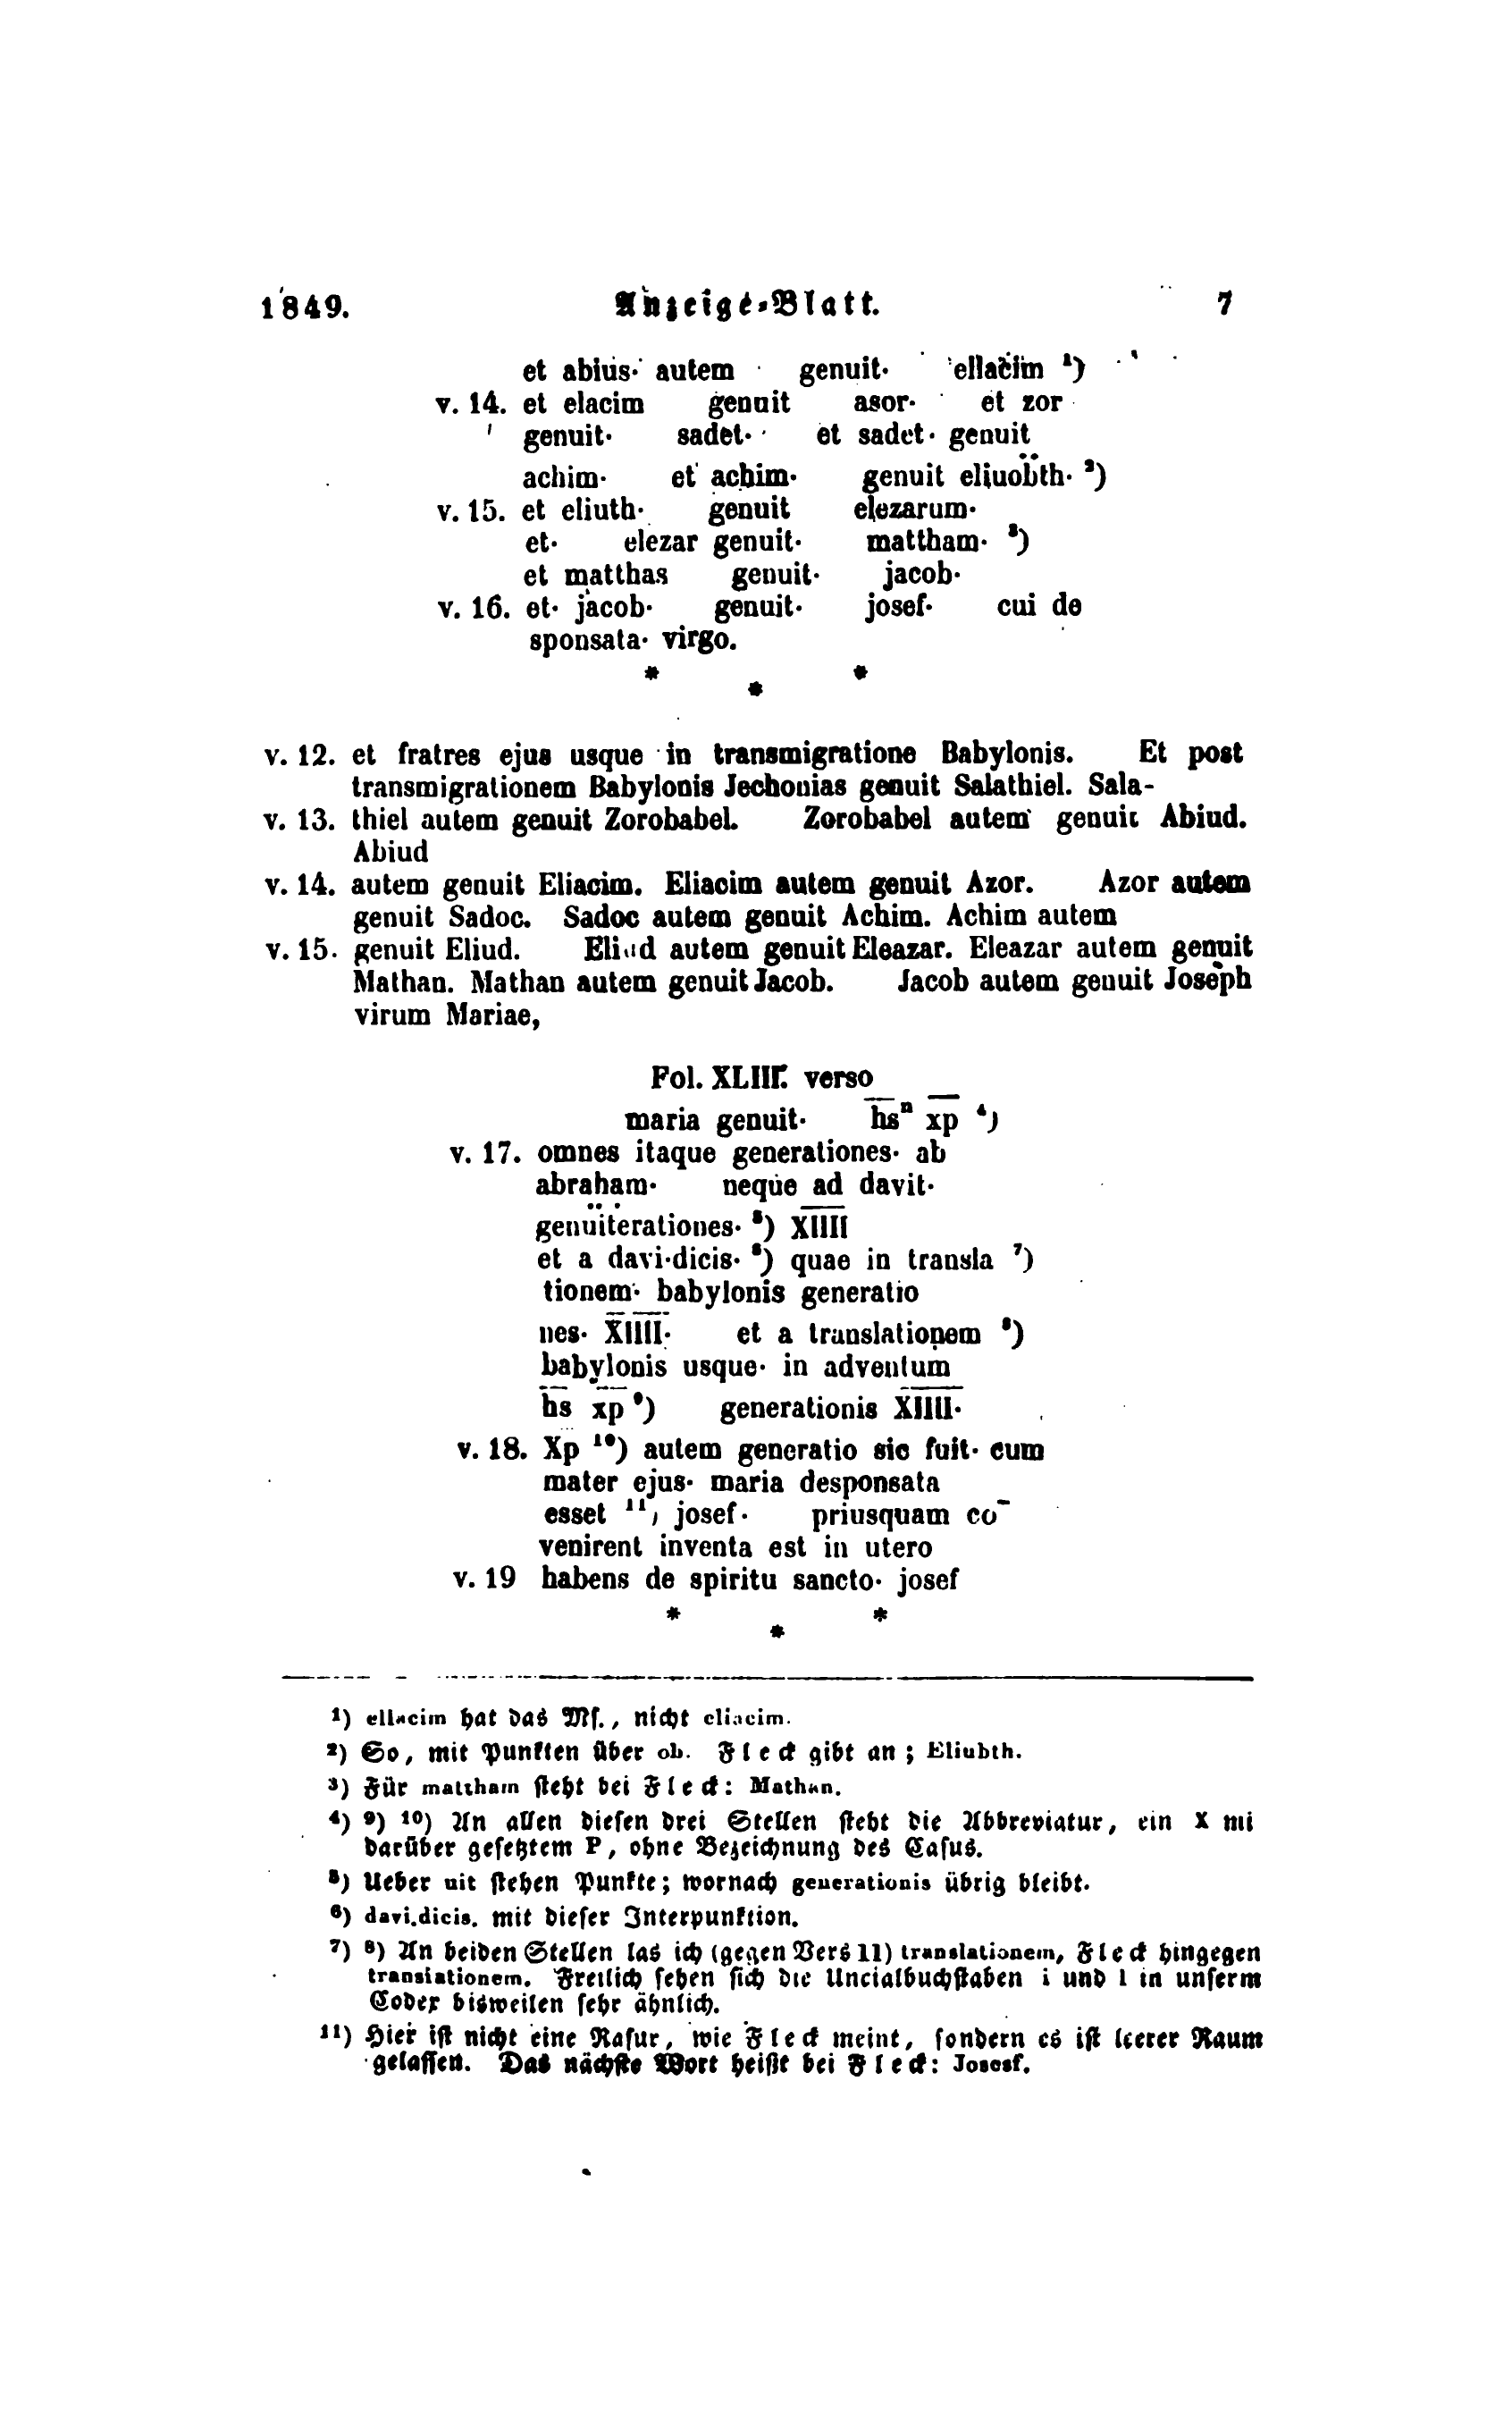 1849. Anzeige-Blatt. 7
et abius· autem genuit· ellacim ¹)
v. 14. et elacim genuit asor· et zor
genuit· sadet· et sadet· genuit
achim· et achim· genuit eliuöb̈th· ²)
v. 15. et eliuth· genuit elezarum·
et· elezar genuit· mattham· ³)
et matthas genuit· jacob·
v. 16. et· jacob· genuit· josef· cui de
sponsata· virgo.
* * *
v. 12. et fratres ejus usque in transmigratione Babylonis. Et post
transmigrationem Babylonis Jechonias genuit Salathiel. Sala-
v. 13. thiel autem genuit Zorobabel. Zorobabel autem genuit Abiud.
Abiud
v. 14. autem genuit Eliacim. Eliacim autem genuit Azor. Azor autem
genuit Sadoc. Sadoc autem genuit Achim. Achim autem
v. 15. genuit Eliud. Eliud autem genuit Eleazar. Eleazar autem genuit
Mathan. Mathan autem genuit Jacob. Jacob autem genuit Joseph
virum Mariae,
Fol. XLIII. verso
maria genuit· h̅s̅ⁿ x̅p̅ ⁴)
v. 17. omnes itaque generationes· ab
abraham· neque ad davit·
genüïṫerationes· ⁵) X̅I̅I̅I̅I̅
et a davi·dicis· ⁶) quae in transla ⁷)
tionem· babylonis generatio
nes· X̅I̅I̅I̅I̅· et a translationem ⁸)
babylonis usque· in adventum
h̅s̅ x̅p̅ ⁹) generationis X̅I̅I̅I̅I̅·
v. 18. Xp ¹⁰) autem generatio sic fuit· cum
mater ejus· maria desponsata
esset ¹¹) josef· priusquam co¯
venirent inventa est in utero
v. 19 habens de spiritu sancto· josef
* * *
¹) ellacim hat das Mſ., nicht eliacim.
²) So, mit Punkten über ob. Fleck gibt an; Eliubth.
³) Für mattham ſteht bei Fleck: Mathan.
⁴) ⁹) ¹⁰) An allen dieſen drei Stellen ſteht die Abbreviatur, ein X mi
darüber geſetztem P, ohne Bezeichnung des Caſus.
⁵) Ueber uit ſtehen Punkte; wornach generationis übrig bleibt.
⁶) davi.dicis. mit dieſer Interpunktion.
⁷) ⁸) An beiden Stellen las ich (gegen Vers 11) translationem, Fleck hingegen
transiationem. Freilich ſehen ſich die Uncialbuchſtaben i und l in unſerm
Codex bisweilen ſehr ähnlich.
¹¹) Hier iſt nicht eine Raſur, wie Fleck meint, ſondern es iſt leerer Raum
gelaſſen. Das nächſte Wort heißt bei Fleck: Josesf.